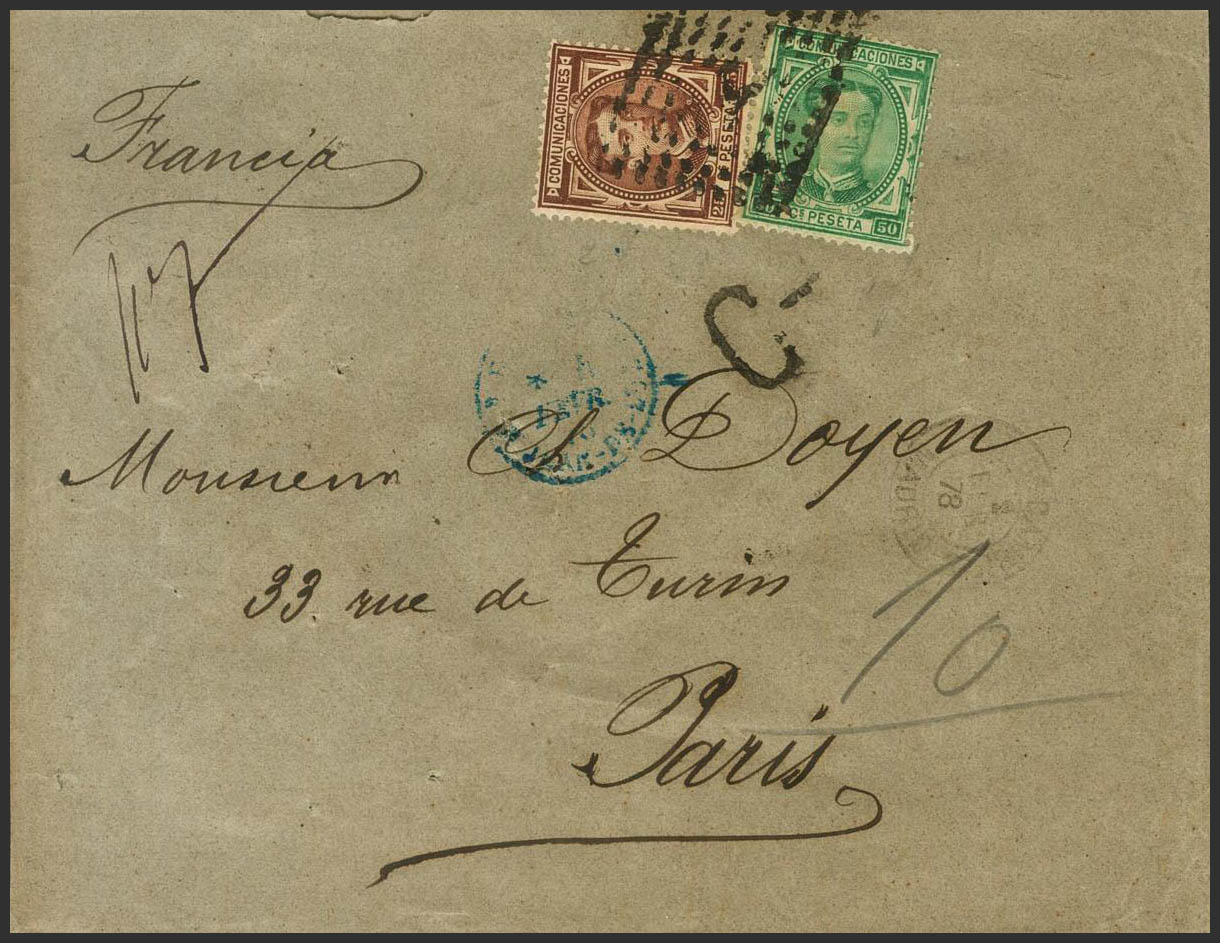 Francia
COMUNICACIONES
PESETA
COMUNICACIONES
Cs PESETA 50
C
Monsieur Ch Doyen
78
33 rue de Turin
10
Paris